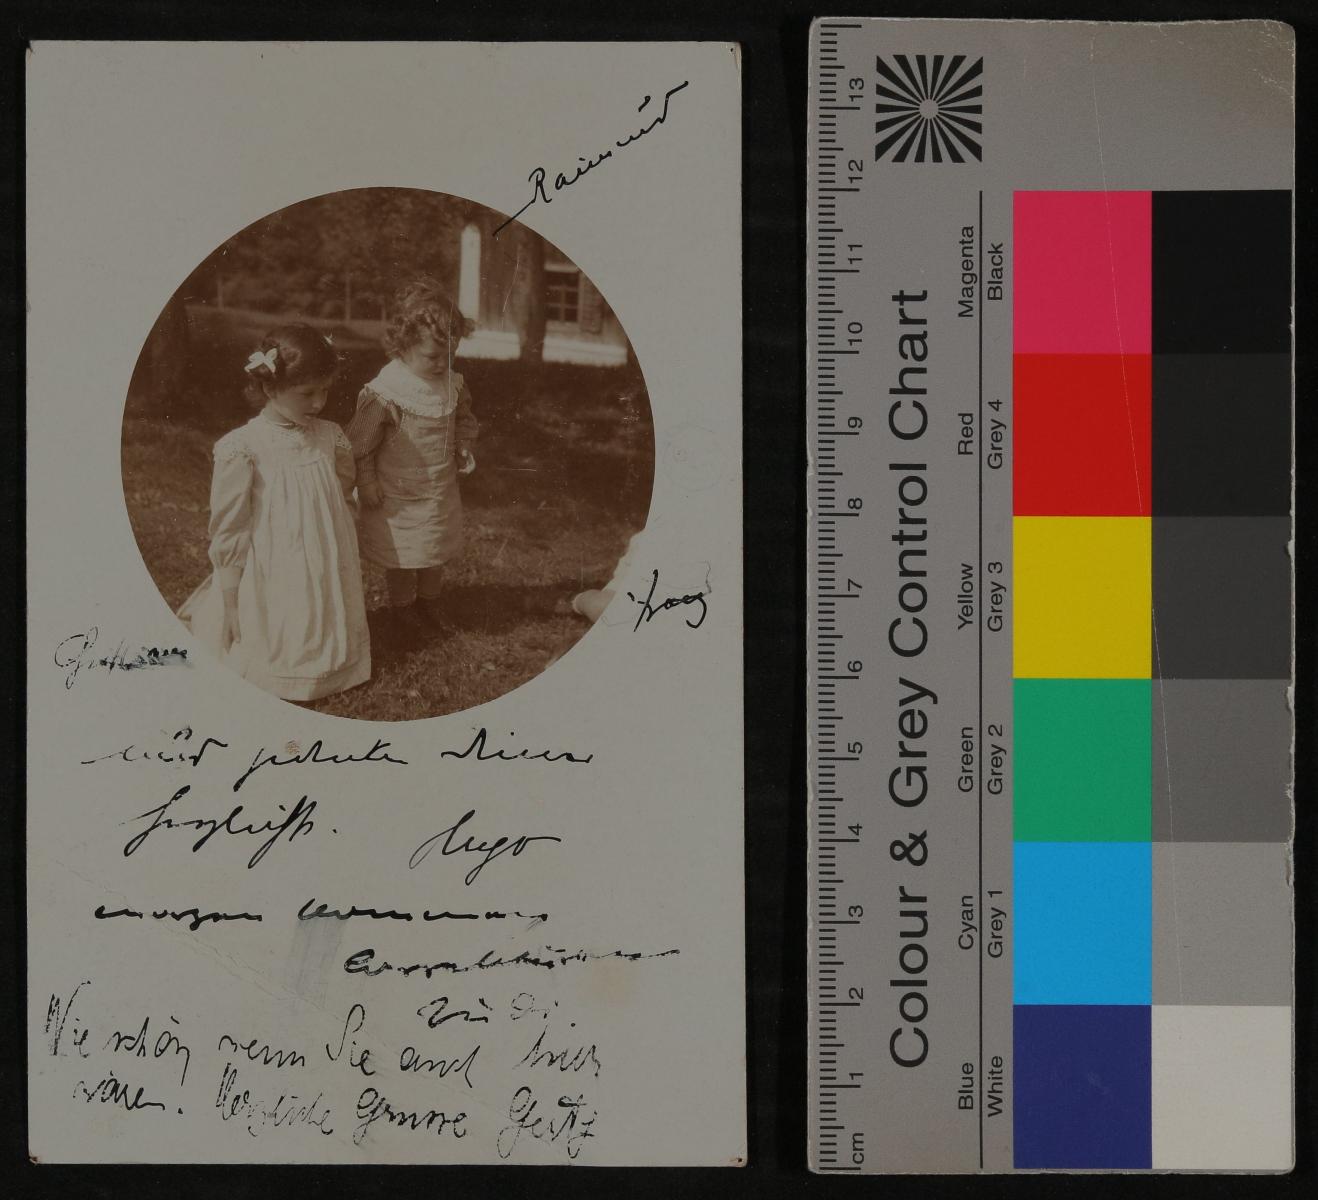 Raimund
Franz
und
herzlichst. Hugo
morgen
zu Dir.
Wie schön wenn Sie auch hier
wären. Herzliche Grüsse Gerty
Colour & Grey Control Chart
Magenta
Black
Red
Grey 4
Yellow
Grey 3
Green
Grey 2
Cyan
Grey 1
Blue
White
13
12
11
10
9
8
7
6
5
4
3
2
1
cm